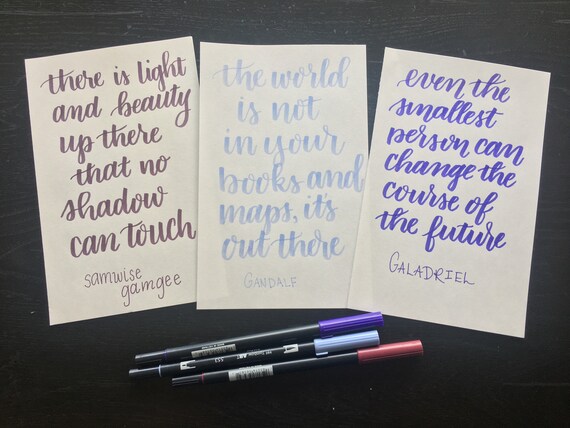 there is light
and beauty
up there
that no
shadow
can touch
samwise
gamgee
the world
is not
in your
books and
maps, it's
out there
GANDALF
even the
smallest
person can
change the
course of
the future
GALADRIEL